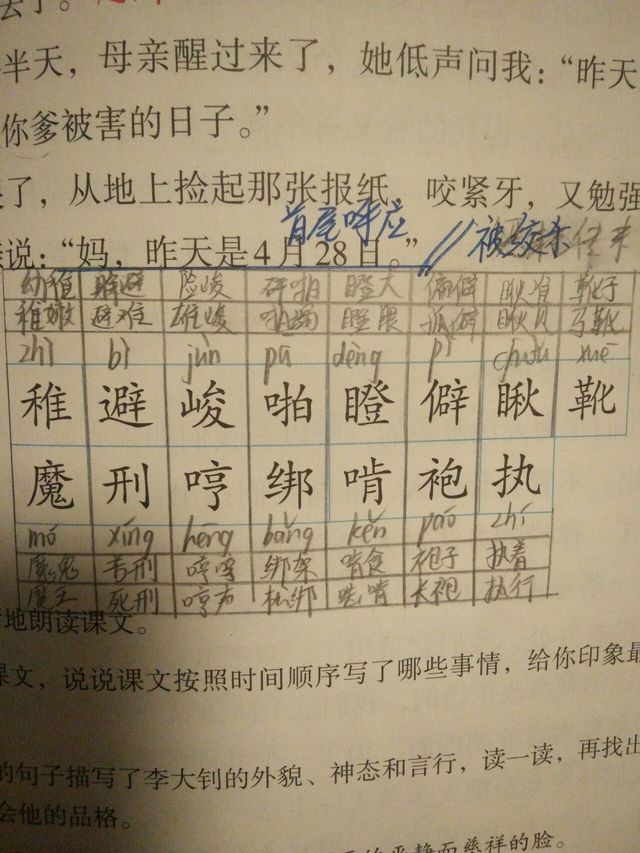 半天，母亲醒过来了，她低声问我：“昨天
你爹被害的日子。”
了，从地上捡起那张报纸，咬紧牙，又勉强
说：“妈，昨天是4月28日。”
首尾呼应
被绞杀
幼稚 躲避 险峻 瞪大 偏僻 瞅准 靴子
稚嫩 避难 啪嗒 瞪眼 孤僻 马靴
zhì bì jùn pā dèng pì chǒu xuē
稚 避 峻 啪 瞪 僻 瞅 靴
魔 刑 哼 绑 啃 袍 执
mó xíng hēng bǎng kěn páo zhí
魔鬼 苦刑 绑架 啃食 袍子 执着
魔王 死刑 哼声 松绑 长袍 执行
地朗读课文。
课文，说说课文按照时间顺序写了哪些事情，给你印象最
的句子描写了李大钊的外貌、神态和言行，读一读，再找出
会他的品格。
严静而慈祥的脸。